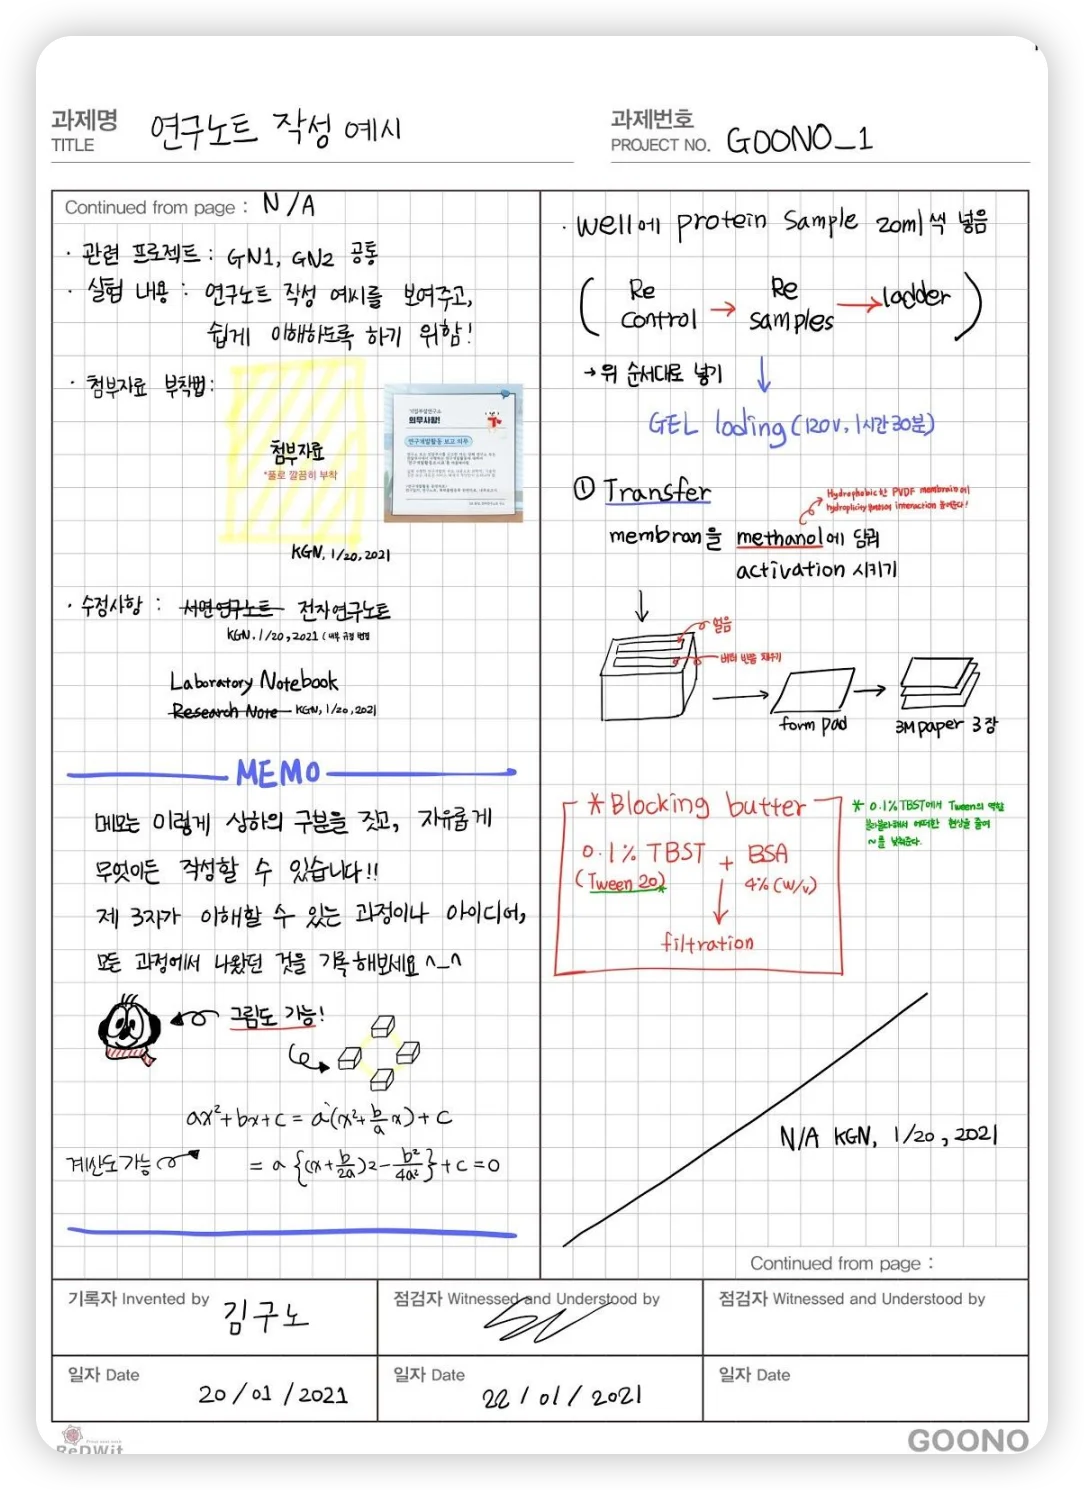 과제명
TITLE
연구노트 작성 예시
과제번호
PROJECT NO. GOONO_1
Continued from page : N/A
· 관련 프로젝트 : GN1, GN2 공통
· 실험 내용 : 연구노트 작성 예시를 보여주고,
쉽게 이해하도록 하기 위함!
· 첨부자료 부착법:
첨부자료
*풀로 깔끔히 부착
기업부설연구소
의무사항!
연구개발활동 보고 의무
KGN, 1/20, 2021
· 수정사항 : 서면연구노트 전자연구노트
KGN. 1/20, 2021 (내부 규정 변경
Laboratory Notebook
Research Note KGN, 1/20, 2021
MEMO
메모는 이렇게 상하의 구분을 짓고, 자유롭게
무엇이든 작성할 수 있습니다!!
제 3자가 이해할 수 있는 과정이나 아이디어,
모든 과정에서 나왔던 것을 기록해보세요 ^_^
그림도 가능!
ax²+bx+c = a(x²+b/a x)+c
계산도가능
= a {(x+b/2a)2-b²/4a²}+c=0
· well에 protein sample 20ml씩 넣음
( Re control → Re samples → ladder )
→ 위 순서대로 넣기
GEL loding (120v, 1시간30분)
① Transfer
Hydrophobic한 PVDF membrain에
interaction 높여준다!
membran을 methanol에 담궈
activation 시키기
얼음
버퍼 빈틈 채우기
form pad
3M paper 3장
* Blocking butter
0.1% TBST + BSA
(Tween 20)* 4% (w/v)
filtration
* 0.1% TBST에서 Tween의 역할
블라블라해서 어떠한 현상을 줄여
~를 낮춰준다.
N/A KGN, 1/20, 2021
Continued from page :
기록자 Invented by 김구노
점검자 Witnessed and Understood by
점검자 Witnessed and Understood by
일자 Date 20/01/2021
일자 Date 22/01/2021
일자 Date
ReDWit
GOONO